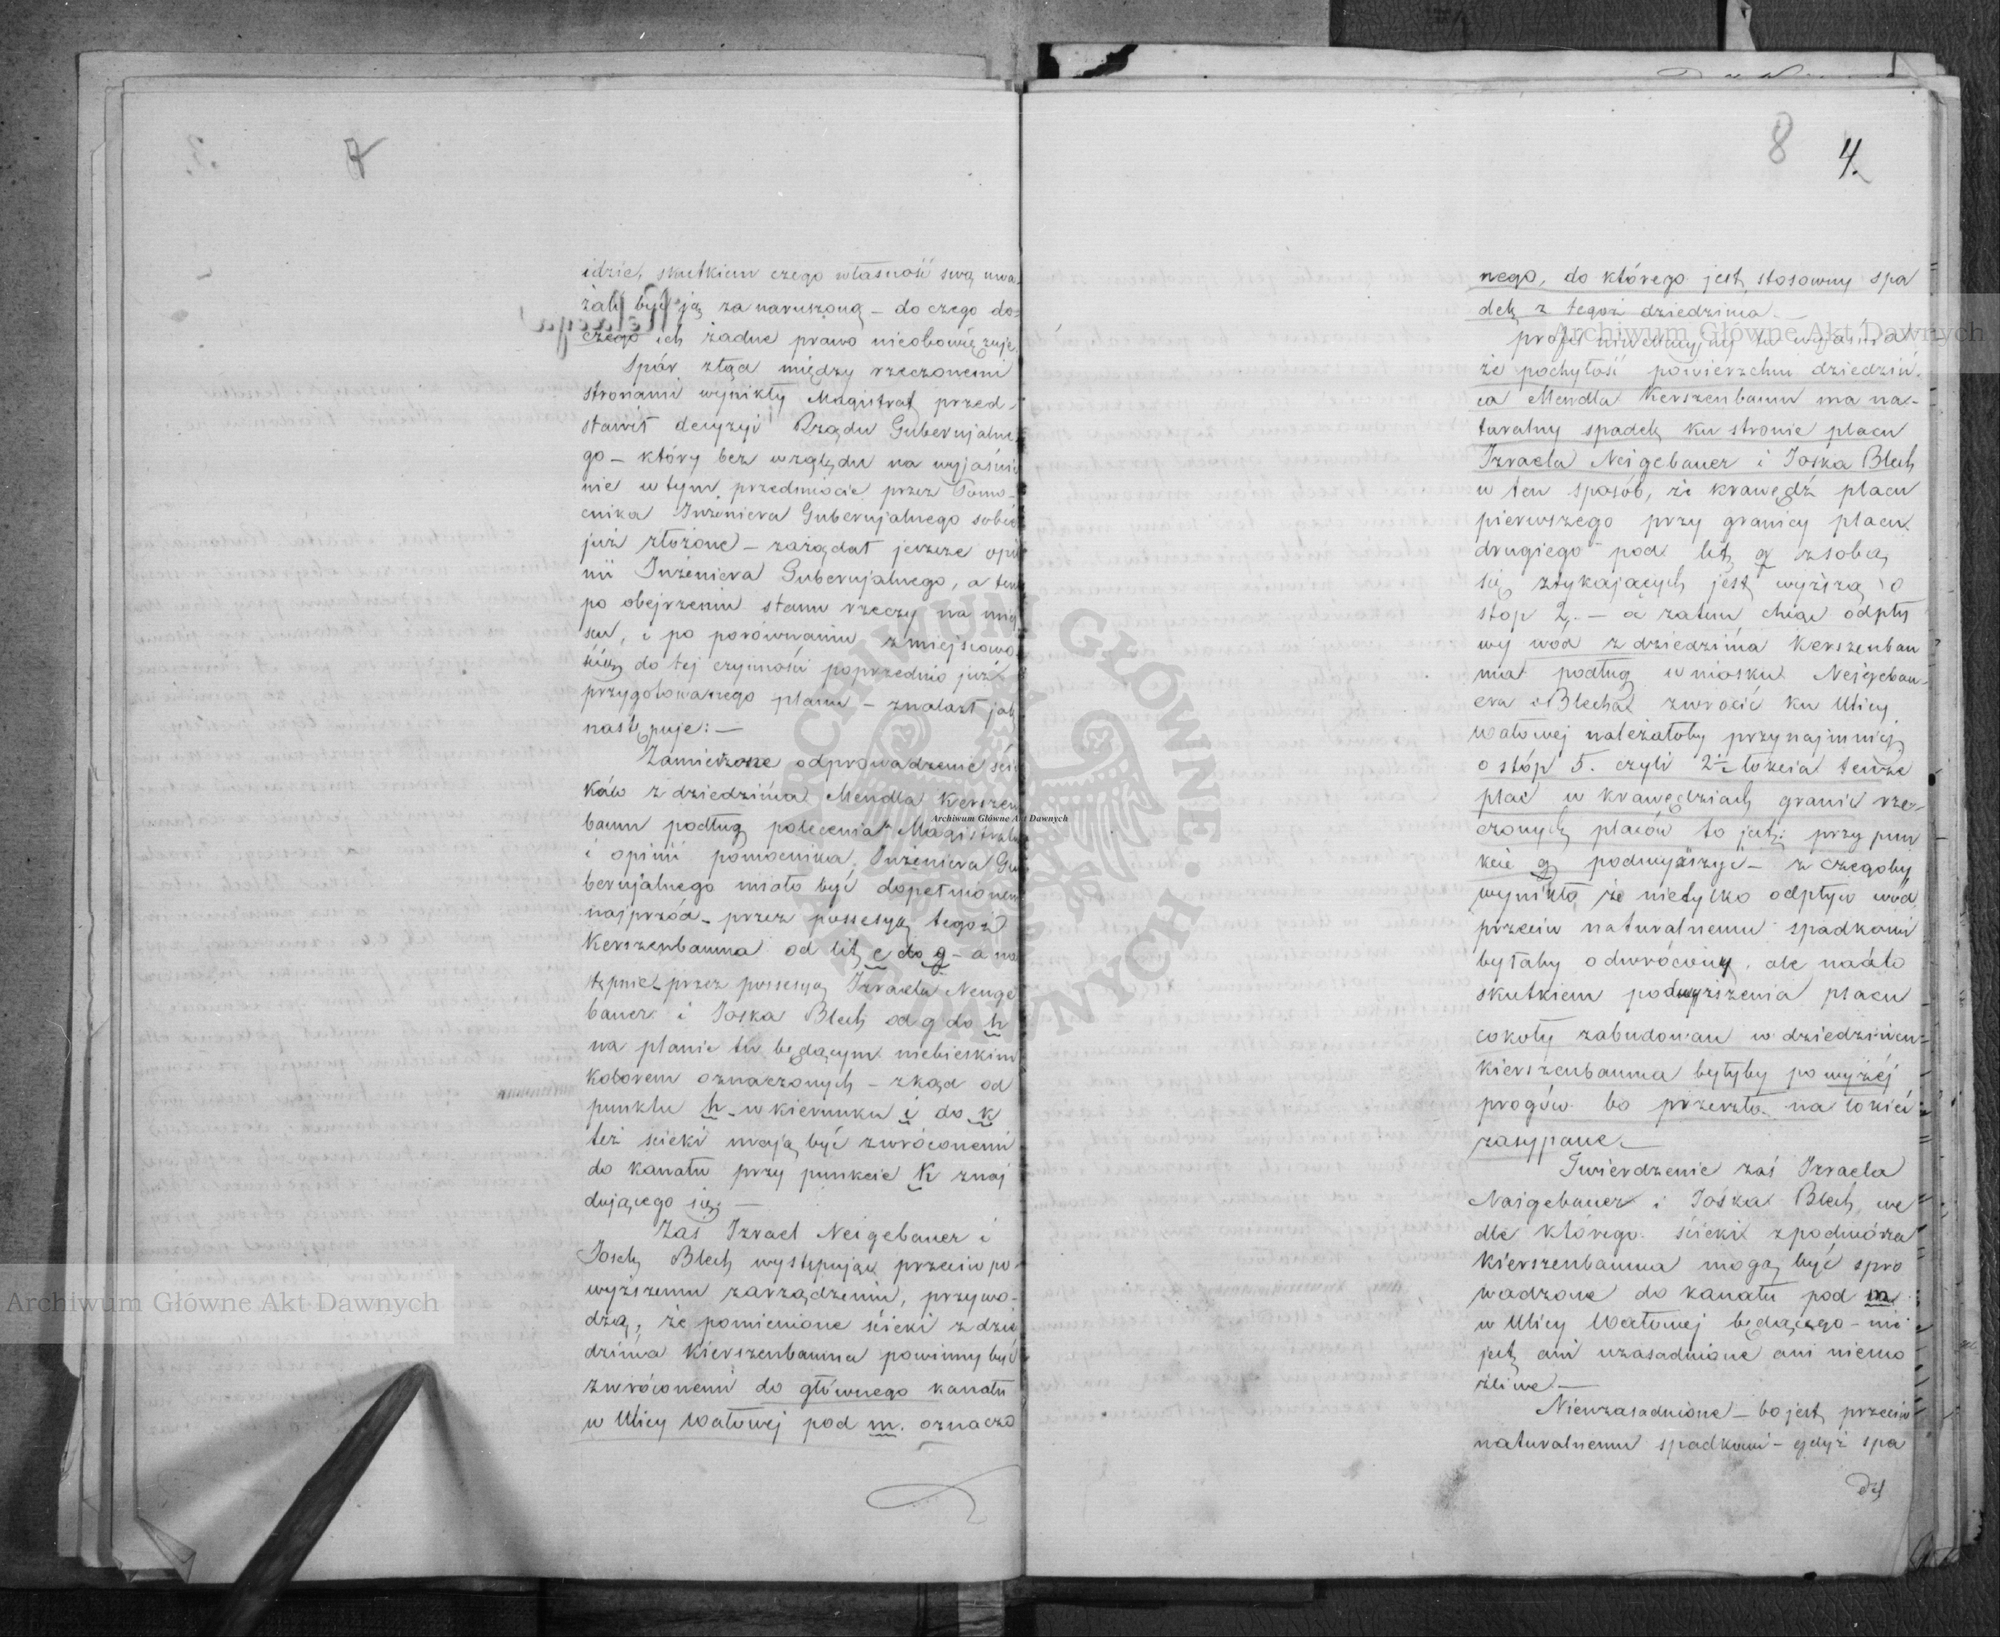 7
idzie, skutkiem czego własność swą uwa-
żali być ją za naruszoną — do czego do-
czego ich żadne prawo nieobowięzuje.
Spór ztąd między rzeczonemi
stronami wynikły Magistrat przed-
stawił decyzyi Rządu Gubernjalne-
go — który bez względu na wyjaśnie
nie w tym przedmiocie przez Pomo-
cnika Inżeniera Gubernjalnego sobie
już złożone — zażądał jeszcze opi
nii Inżeniera Gubernjalnego, a ten
po obejrzeniu stanu rzeczy na miej
scu, i po porównaniu z miejscowo
ścią do tej czynności poprzednio już
przygotowanego planu — znalazł jak
następuje: —
Zamierzone odprowadzenie ście
ków z dziedzińca Mendla Kerszen
baum podług polecenia Magistratu
i opinii pomocnika Inżeniera Gu
bernjalnego miało być dopełnionem
najprzód — przez possesyą tegoż
Kerszenbauma od lit. e do g — a na
stępnie — przez possesyą Izraela Neuge
bauer i Joska Blech od g do h
na planie tu będącym niebieskim
kolorem oznaczonych — zkąd od
punktu h — w kierunku i do k
też ścieki mają być zwróconemi
do kanału przy punkcie K znaj
dującego się. —
Zaś Izrael Neigebauer i
Josek Blech występując przeciw po-
wyższemu zarządzeniu, przywo-
dzą, że pomienione ścieki z dzie
dzińca Kierszenbauma powinny być
zwróconemi do głównego kanału
w Ulicy Wałowej pod m. oznaczo
8 4.
nego, do którego jest stosowny spa
dek z tegoż dziedzińca. —
profil niwelacyjny tu wyjaśnia
że pochyłość powierzchni dziedziń-
ca Mendla Kerszenbaum ma na-
turalny spadek ku stronie placu
Izraela Neigebauer i Joska Blech
w ten sposób, że krawędź placu
pierwszego przy granicy placu
drugiego pod lit. g z sobą
się ztykających jest wyższą o
stóp 2. — a zatem chcąc odpły
wy wód z dziedzińca Kerszenbau
ma podług wniosku Neigebau-
era i Blecha zwrócić ku Ulicy
Wałowej należałoby przynajmniej
o stóp 5. czyli 2½ łokcia tenże
plac w krawędziach granic rze-
czonych placów to jest: przy pun
kcie g podwyższyć — z czegoby
wynikło, że nietylko odpływ wód
przeciw naturalnemu spadkowi
byłaby odwrócony, ale nadto
skutkiem podwyższenia placu
cokoły zabudowań w dziedzińcu
Kierszenbauma byłyby powyżej
progów bo przeszło na łokieć
zasypane. —
Twierdzenie zaś Izraela
Naigebauer i Jośka Blech, we
dle którego ścieki z podwórza
Kierszenbauma mogą być spro
wadzone do kanału pod m
w Ulicy Wałowej będącego — nie
jest ani uzasadnione ani niemo
żliwe. —
Nieuzasadnione — bo jest przeciw
naturalnemu spadkowi — gdyż spa
dek
Archiwum Główne Akt Dawnych
Archiwum Główne Akt Dawnych
Archiwum Główne Akt Dawnych
ARCHIWUM GŁÓWNE AKT DAWNYCH